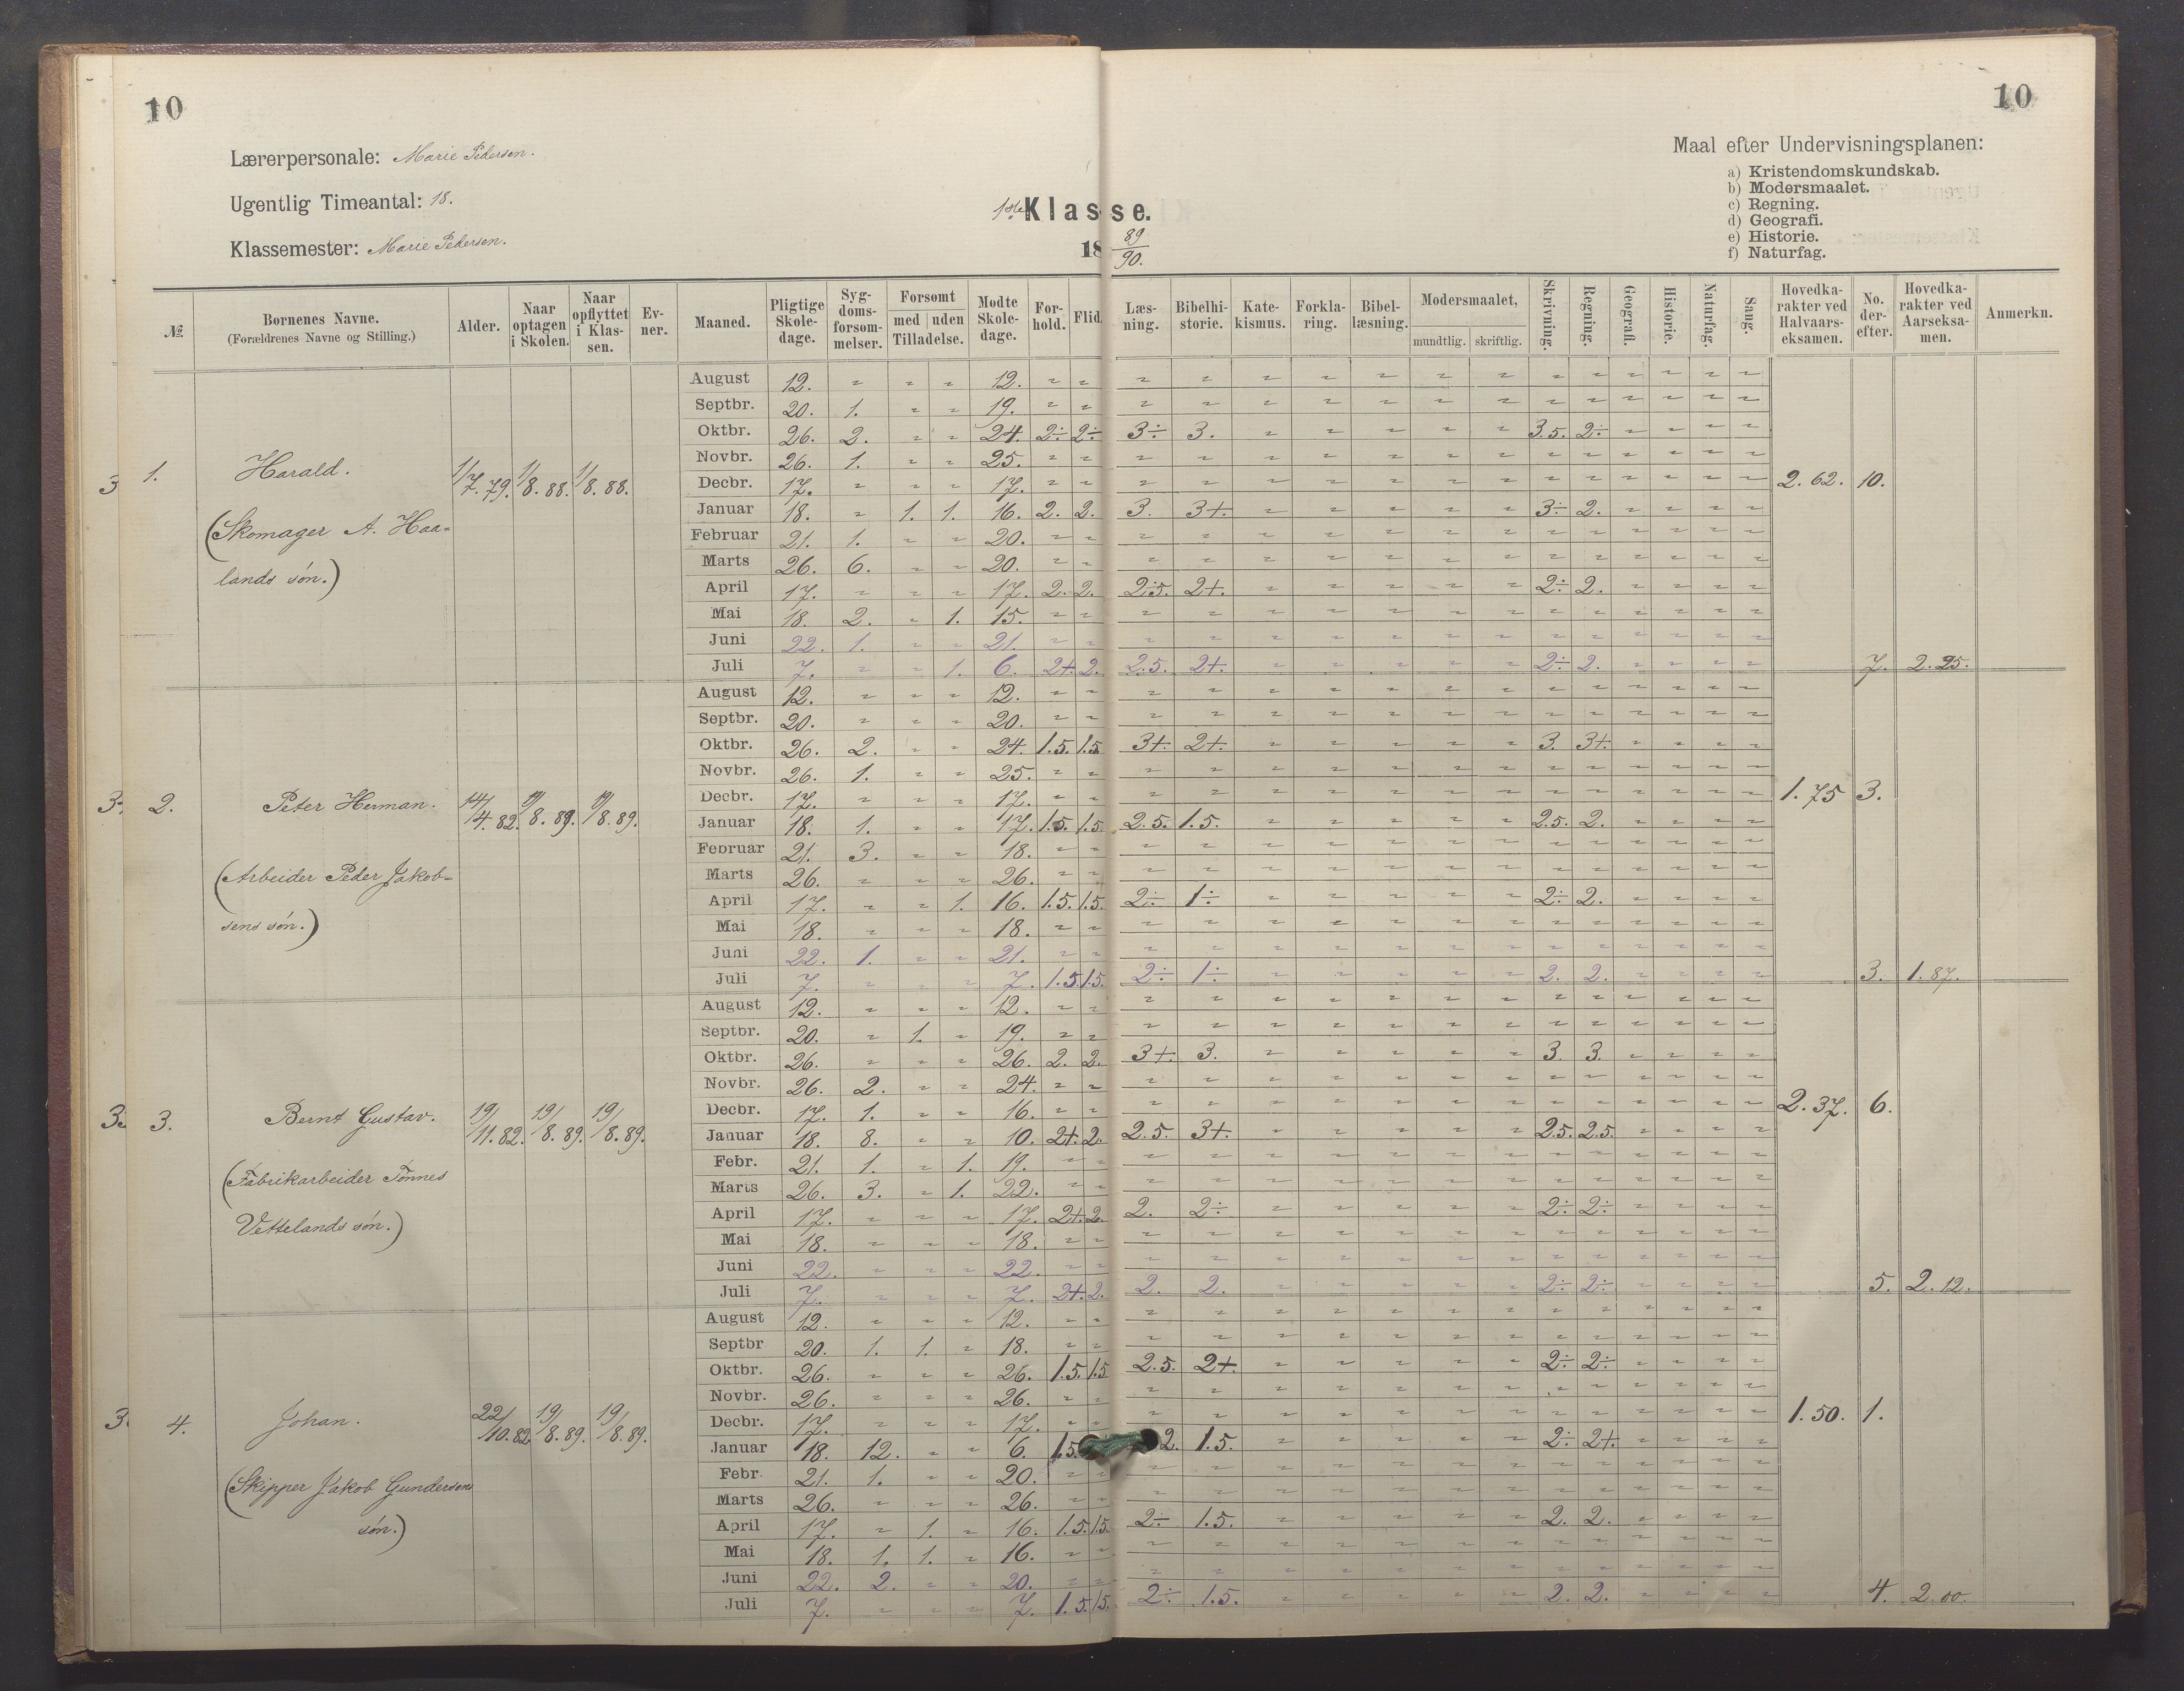 10
10
Lærerpersonale: Marie Pedersen.
Ugentlig Timeantal: 18.
Klassemester: Marie Pedersen.
1ste Klasse.
18 89/90.
Maal efter Undervisningsplanen:
a) Kristendomskundskab.
b) Modersmaalet.
c) Regning.
d) Geografi.
e) Historie.
f) Naturfag.
№ Børnenes Navne. (Forældrenes Navne og Stilling.) Alder. Naar optagen i Skolen. Naar opflyttet i Klassen. Evner. Maaned. Pligtige Skoledage. Sygdomsforsømmelser. Forsømt med uden Tilladelse. Mødte Skoledage. Forhold. Flid. Læsning. Bibelhistorie. Katekismus. Forklaring. Bibellæsning. Modersmaalet, mundtlig. skriftlig. Skrivning. Regning. Geografi. Historie. Naturfag. Sang. Hovedkarakter ved Halvaarseksamen. No. derefter. Hovedkarakter ved Aarseksamen. Anmerkn.
1. Harald. 1/7.79. 1/8.88. 1/8.88.
(Skomager A. Haa=
lands søn.)
August 12. 12.
Septbr. 20. 1. 19.
Oktbr. 26. 2. 24. 2÷ 2÷ 3÷ 3. 3.5. 2÷
Novbr. 26. 1. 25.
Decbr. 17. 17. 2.62. 10.
Januar 18. 1. 1. 16. 2. 2. 3. 3+. 3÷ 2.
Februar 21. 1. 20.
Marts 26. 6. 20.
April 17. 17. 2. 2. 2.5. 2+. 2÷ 2.
Mai 18. 2. 1. 15.
Juni 22. 1. 21.
Juli 7. 1. 6. 2+. 2. 2.5. 2+. 2÷ 2. 7. 2.25.
2. Peter Herman. 14/4.82. 19/8.89. 19/8.89.
(Arbeider Peder Jakob=
sens søn.)
August 12. 12.
Septbr. 20. 20.
Oktbr. 26. 2. 24. 1.5. 1.5 3+. 2+. 3. 3+.
Novbr. 26. 1. 25.
Decbr. 17. 17. 1.75 3.
Januar 18. 1. 17. 1.5. 1.5. 2.5. 1.5. 2.5. 2.
Februar 21. 3. 18.
Marts 26. 26.
April 17. 1. 16. 1.5. 1.5. 2÷ 1÷ 2÷ 2.
Mai 18. 18.
Juni 22. 1. 21.
Juli 7. 7. 1.5. 1.5. 2÷ 1÷ 2. 2. 3. 1.87.
3. Bernt Gustav. 19/11.82. 19/8.89. 19/8.89.
(Fabrikarbeider Tønnes
Vettelands søn.)
August 12. 12.
Septbr. 20. 1. 19.
Oktbr. 26. 26. 2. 2. 3+. 3. 3. 3.
Novbr. 26. 2. 24.
Decbr. 17. 1. 16. 2.37. 6.
Januar 18. 8. 10. 2+. 2. 2.5. 3+. 2.5. 2.5.
Febr. 21. 1. 1. 19.
Marts 26. 3. 1. 22.
April 17. 17. 2+. 2. 2. 2÷ 2÷ 2÷
Mai 18. 18.
Juni 22. 22.
Juli 7. 7. 2+. 2. 2. 2. 2÷ 2÷ 5. 2.12.
4. Johan. 22/10.82 19/8.89. 19/8.89.
(Skipper Jakob Gundersens
søn.)
August 12. 12.
Septbr 20. 1. 1. 18.
Oktbr. 26. 26. 1.5. 1.5 2.5. 2+. 2÷ 2÷
Novbr. 26. 26.
Decbr. 17. 17. 1.50. 1.
Januar 18. 12. 6. 1.5 2. 1.5. 2÷ 2+.
Febr 21. 1. 20.
Marts 26. 26.
April 17. 1. 16. 1.5. 1.5. 2÷ 1.5. 2. 2.
Mai 18. 1. 1. 16.
Juni 22. 2. 20.
Juli 7. 7. 1.5. 1.5. 2÷ 1.5. 2. 2. 4. 2.00.